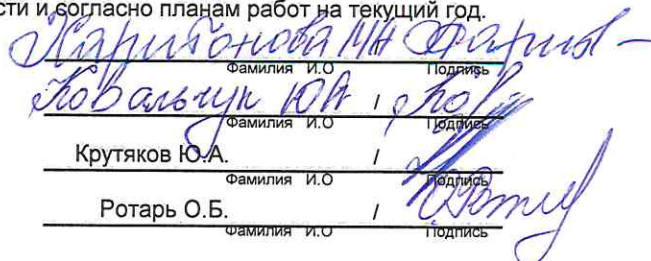 сти и согласно планам работ на текущий год.
Харитонова МА
Фамилия И.О Подпись
Ковальчук ЮА /
Фамилия И.О Подпись
Крутяков Ю.А. /
Фамилия И.О Подпись
Ротарь О.Б. /
Фамилия И.О Подпись